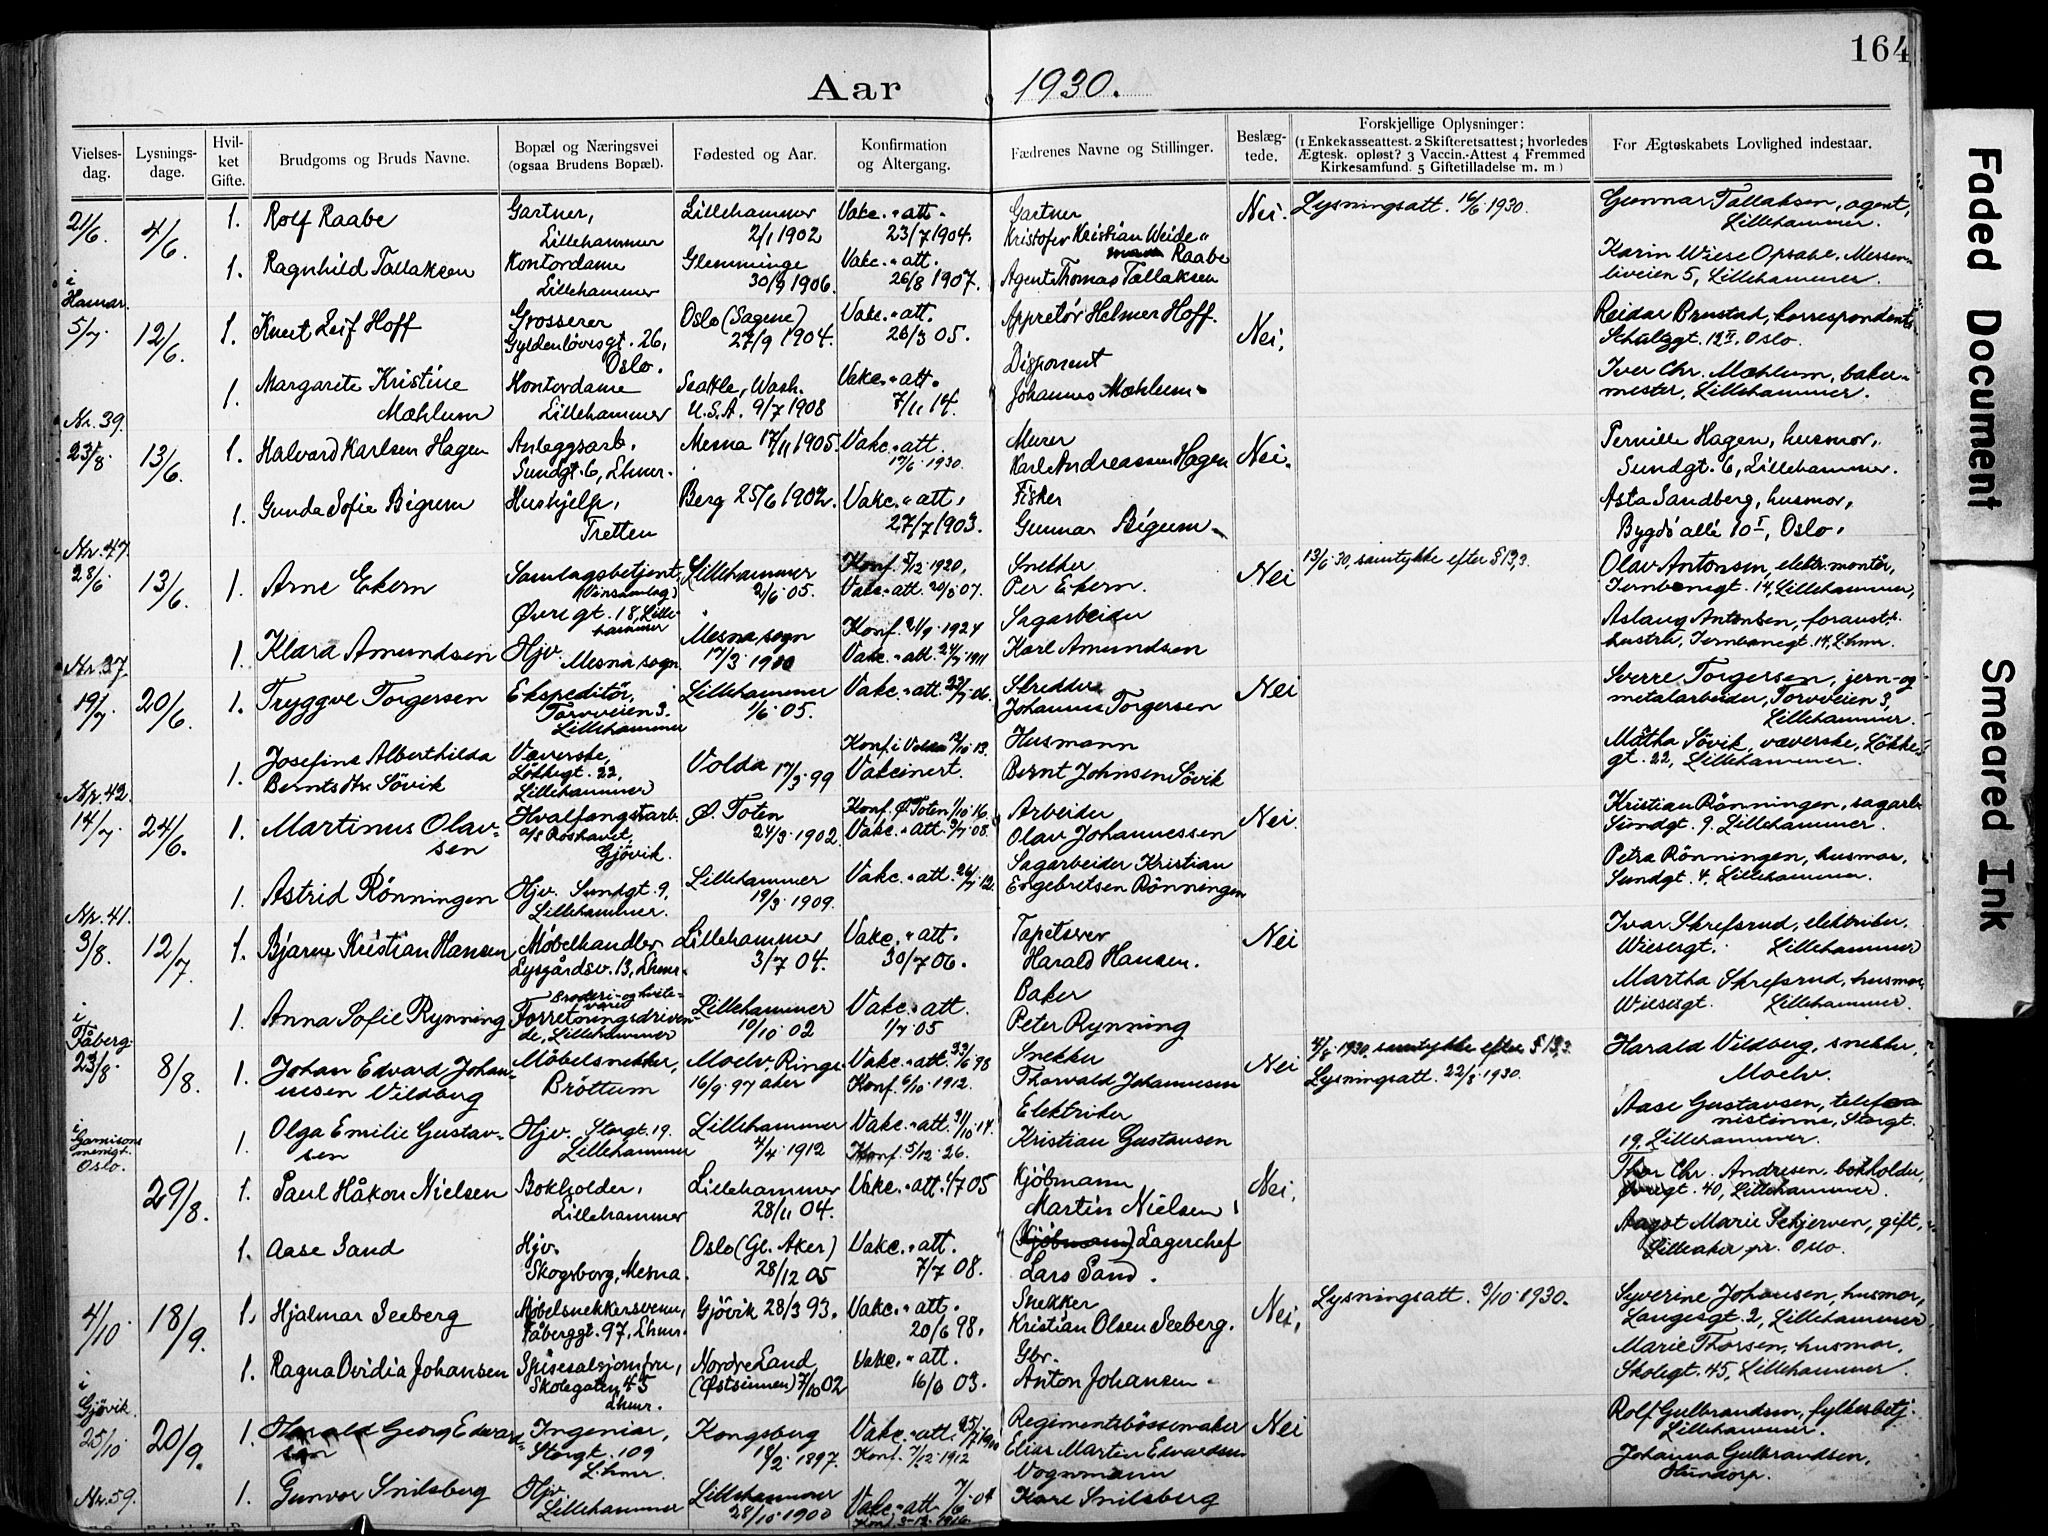 164
Aar 1930.
Vielses-dag.
Lysnings-dage.
Hvil-ket Gifte.
Brudgoms og Bruds Navne.
Bopæl og Næringsvei (ogsaa Brudens Bopæl).
Fødested og Aar.
Konfirmation og Altergang.
Fædrenes Navne og Stillinger.
Beslæg-tede.
Forskjellige Oplysninger:
(1 Enkekasseattest. 2 Skifteretsattest; hvorledes
Ægtesk. opløst? 3 Vaccin.-Attest 4 Fremmed
Kirkesamfund. 5 Giftetilladelse m. m.)
For Ægteskabets Lovlighed indestaar.
21/6. 4/6. 1. Rolf Raabe Gartner, Lillehammer Lillehammer 2/1 1902 Vakc. att. 23/7 1904. Gartner Kristofer Kristian Weide- mann Raabe Nei. Lysningsatt. 16/6 1930. Gunnar Tallaksen, agent, Lillehammer.
i Hamar. 1. Ragnhild Tallaksen Kontordame Lillehammer Glemminge 30/9 1906. Vakc. att. 26/8 1907. Agent Thomas Tallaksen Karin Wiese Opsahl, liveien 5, Lillehammer.
5/7. 12/6. 1. Knut Leif Hoff Grosserer Gyldenløvesgt. 26, Oslo. Oslo (Sagene) 27/9 1904. Vakc. att. 26/3 05. Appretør Helmer Hoff. Nei. Reidar Brustad, korrespondent, Schultzgt. 12 II, Oslo.
Nr. 39. 1. Margarete Kristine Mæhlum Kontordame Lillehammer Seattle, Wash. U.S.A. 9/7 1908 Vakc. att. 7/11 14. Disponent Johannes Mæhlum Iver Chr. Mæhlum, baker- mester, Lillehammer.
23/8 13/6. 1. Halvard Karlsen Hagen Anleggsarb. Sundgt. 6, Lhmr. Mesna 17/11 1905. Vakc. att. 17/6 1930. Murer Karl Andreassen Hagen Nei. Pernille Hagen, husmor, Sundgt. 6, Lillehammer.
Nr. 47. 1. Gunda Sofie Bigum Hushjelp, Tretten Berg 25/6 1902. Vakc. att. 27/7 1903. Fisker Gunnar Bigum Asta Sandberg, husmor, Bygdø allé 10 I, Oslo.
28/6 13/6. 1. Arne Ekern Samlagsbetjent (Vinsamlag) Øvregt. 18, Lille- hammer Lillehammer 2/6 05. Konf. 5/12 1920. Vakc. att. 20/5 07. Snekker Per Ekern. Nei 13/6 30, samtykke efter § 13,3. Olav Antonsen, elektr.montør, Jernbanegt. 14, Lillehammer,
Nr. 37. 1. Klara Amundsen Hjv. Mesna sogn Mesna sogn 17/3 1910 Konf. 21/9 1924 Vakc. att. 24/7 1911 Sagarbeider Karl Amundsen Aslaug Antonsen, hustru, Jernbanegt. 14, Lhmr.
19/7. 20/6. 1. Tryggve Torgersen Ekspeditør, Torvveien 3. Lillehammer Lillehammer 1/6 05. Vakc. att. 22/7 06. Skredder Johannes Torgersen Nei Sverre Torgersen, jern- og metalarbeider, Torvveien 3, Lillehammer.
Nr. 42. 1. Josefine Alberthilda Berntsdtr. Søvik Væverske, Løkkegt. 22, Lillehammer Volda 17/3 99 Konf. i Volda 12/10 13. Vakcinert. Husmann Bernt Johnsen Søvik Søvik, væverske, Løkke- gt. 22, Lillehammer.
14/7. 24/6. 1. Martinus Olav- sen Hvalfangstarb. a/s Rosshavet Gjøvik. Ø. Toten 24/3 1902. Konf. Ø. Toten 1/10 16. Vakc. att. 9/7 08. Arbeider Olav Johannessen Nei. Kristian Rønningen, sagarb. Sundgt. 9. Lillehammer.
Nr. 41. 1. Astrid Rønningen Hjv. Sundgt. 9, Lillehammer. Lillehammer 19/3 1909. Vakc. att. 26/7 12. Sagarbeider Kristian Engebretsen Rønningen Petra Rønningen, husmor, Sundgt. 4, Lillehammer.
3/8. 12/7 1. Bjarne Kristian Hansen Møbelhandler Lysgårdsv. 13, Lhmr. Lillehammer 3/7 04. Vakc. att. 30/7 06. Tapetserer Harald Hansen. Nei Ivar Skrefsrud, elektriker. Wiesesgt. Lillehammer
i Fåberg. 1. Anna Sofie Rynning Broderi- og hvite- varer Forretningsdriven- de, Lillehammer Lillehammer 10/10 02 Vakc. att. 1/7 05 Baker Peter Rynning Martha Skrefsrud, husmor, Wiesesgt. Lillehammer.
23/8. 8/8. 1. Johan Edvard Johan- nesen Vildberg Møbelsnekker, Brøttum Moelv, Rings- aker 16/9 97 Vakc. att. 23/6 98 Konf. 6/10 1912. Snekker Thorvald Johannesen Nei 4/8 1930, samtykke efter § 13,3. Lysningsatt. 22/8 1930. Harald Vildberg, snekker, Moelv.
i Garnisons menigt. Oslo. 1. Olga Emilie Gustav- sen Hjv. Storgt. 19. Lillehammer Lillehammer 4/4 1912 Vakc. att. 31/10 14. Konf. 5/12 26. Elektriker Kristian Gustavsen Aase Gustavsen, telefo- nistinne, Storgt. 19, Lillehammer.
29/8. 1. Paul Håkon Nielsen Bokholder, Lillehammer Lillehammer 28/11 04. Vakc. att. 1/7 05 Kjøbmann Martin Nielsen Nei. Thor Chr. Andresen, bokholder, Øvregt. 40, Lillehammer.
1. Aase Sand Hjv. Skogsborg, Mesna. Oslo (Gl. Aker) 28/12 05 Vakc. att. 7/7 08. (Kjøbmann) Lagerchef Lars Sand. Aagot Marie Schjerven, gift, Lilleaker pr. Oslo.
4/10 18/9. 1. Hjalmar Seeberg Møbelsnekkersvenn, Fåberggt. 97, Lhmr. Gjøvik 28/3 93. Vakc. att. 20/6 98. Snekker Kristian Olsen Seeberg. Nei. Lysningsatt. 3/10 1930. Syverine Johansen, husmor, Langesgt. 2, Lillehammer
i Gjøvik. 1. Ragna Ovidia Johansen Spisesalsjomfru, Skolegaten 45 Lhmr. Nordre Land (Østsinnen) 7/10 02 Vakc. att. 16/6 03. Gbr. Anton Johansen. Marie Thorsen, husmor, Skolegt. 45, Lillehammer.
25/10 20/9. 1. Harald Georg Edvard- sen Ingeniør, Storgt. 109 Lhmr. Kongsberg 18/2 1897. Vakc. att. 25/7 1900 Konf. 7/12 1912 Regimentsbøssemaker Elias Martin Edvardsen Nei Rolf Gulbrandsen, fylkesbetj. Lillehammer.
Nr. 59. 1. Gunvor Snilsberg Hjv. Lillehammer Lillehammer 28/10 1900 Vakc. att. 7/6 04 Konf. 3-12-1916. Vognmann Karl Snilsberg Johanna Gulbrandsen, Hundorp.
Faded Document
Smeared Ink